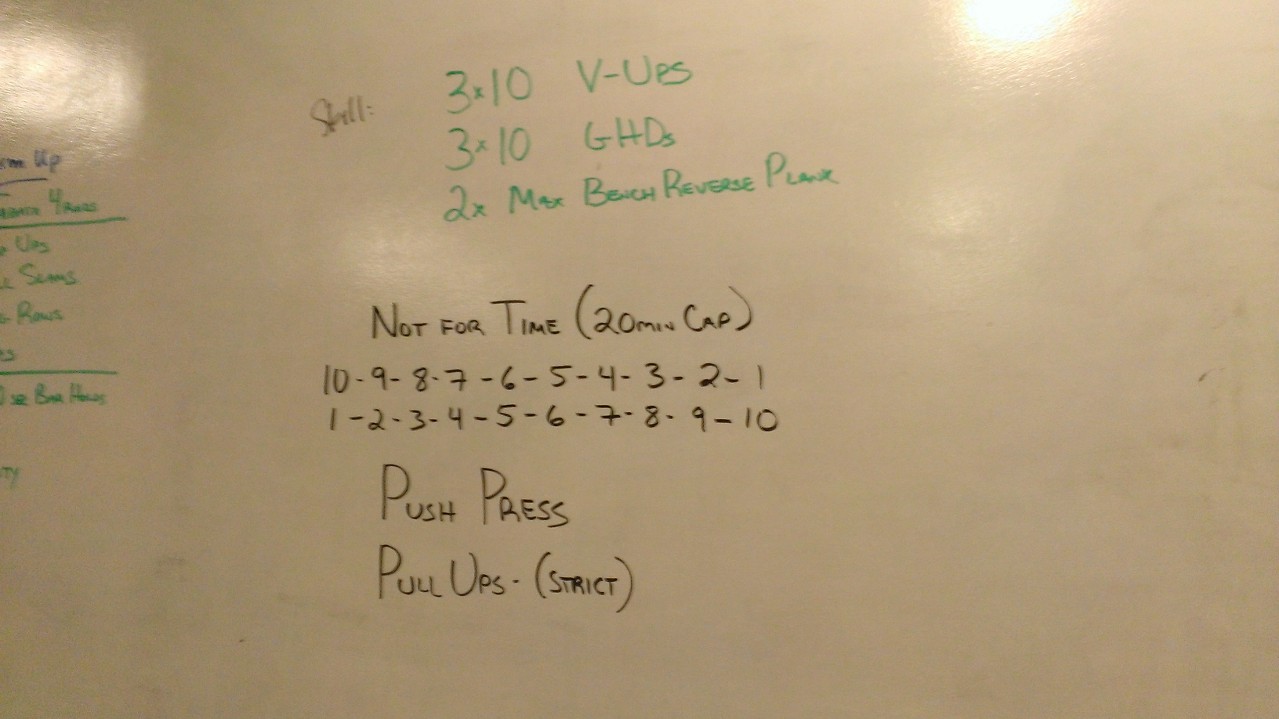 Up
4 Rnds
Ups
Rows
Bar Holds
Skill:
3x10 V-Ups
3x10 GHDs
2x Max Bench Reverse Plank
Not for Time (20min Cap)
10-9-8-7-6-5-4-3-2-1
1-2-3-4-5-6-7-8-9-10
Push Press
Pull Ups - (Strict)